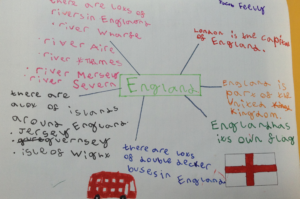 there are lots of
rivers in England
· river Wharfe
· river Aire
· river Thames
· river Mersey
· river Severn
London is the capital
of England.
England
England is
part of the
United
Kingdom.
England has
its own flag
there are
alot of islands
around England
· Jersey
· guernsey
· isle of Wight
there are lots
of double decker
buses in England